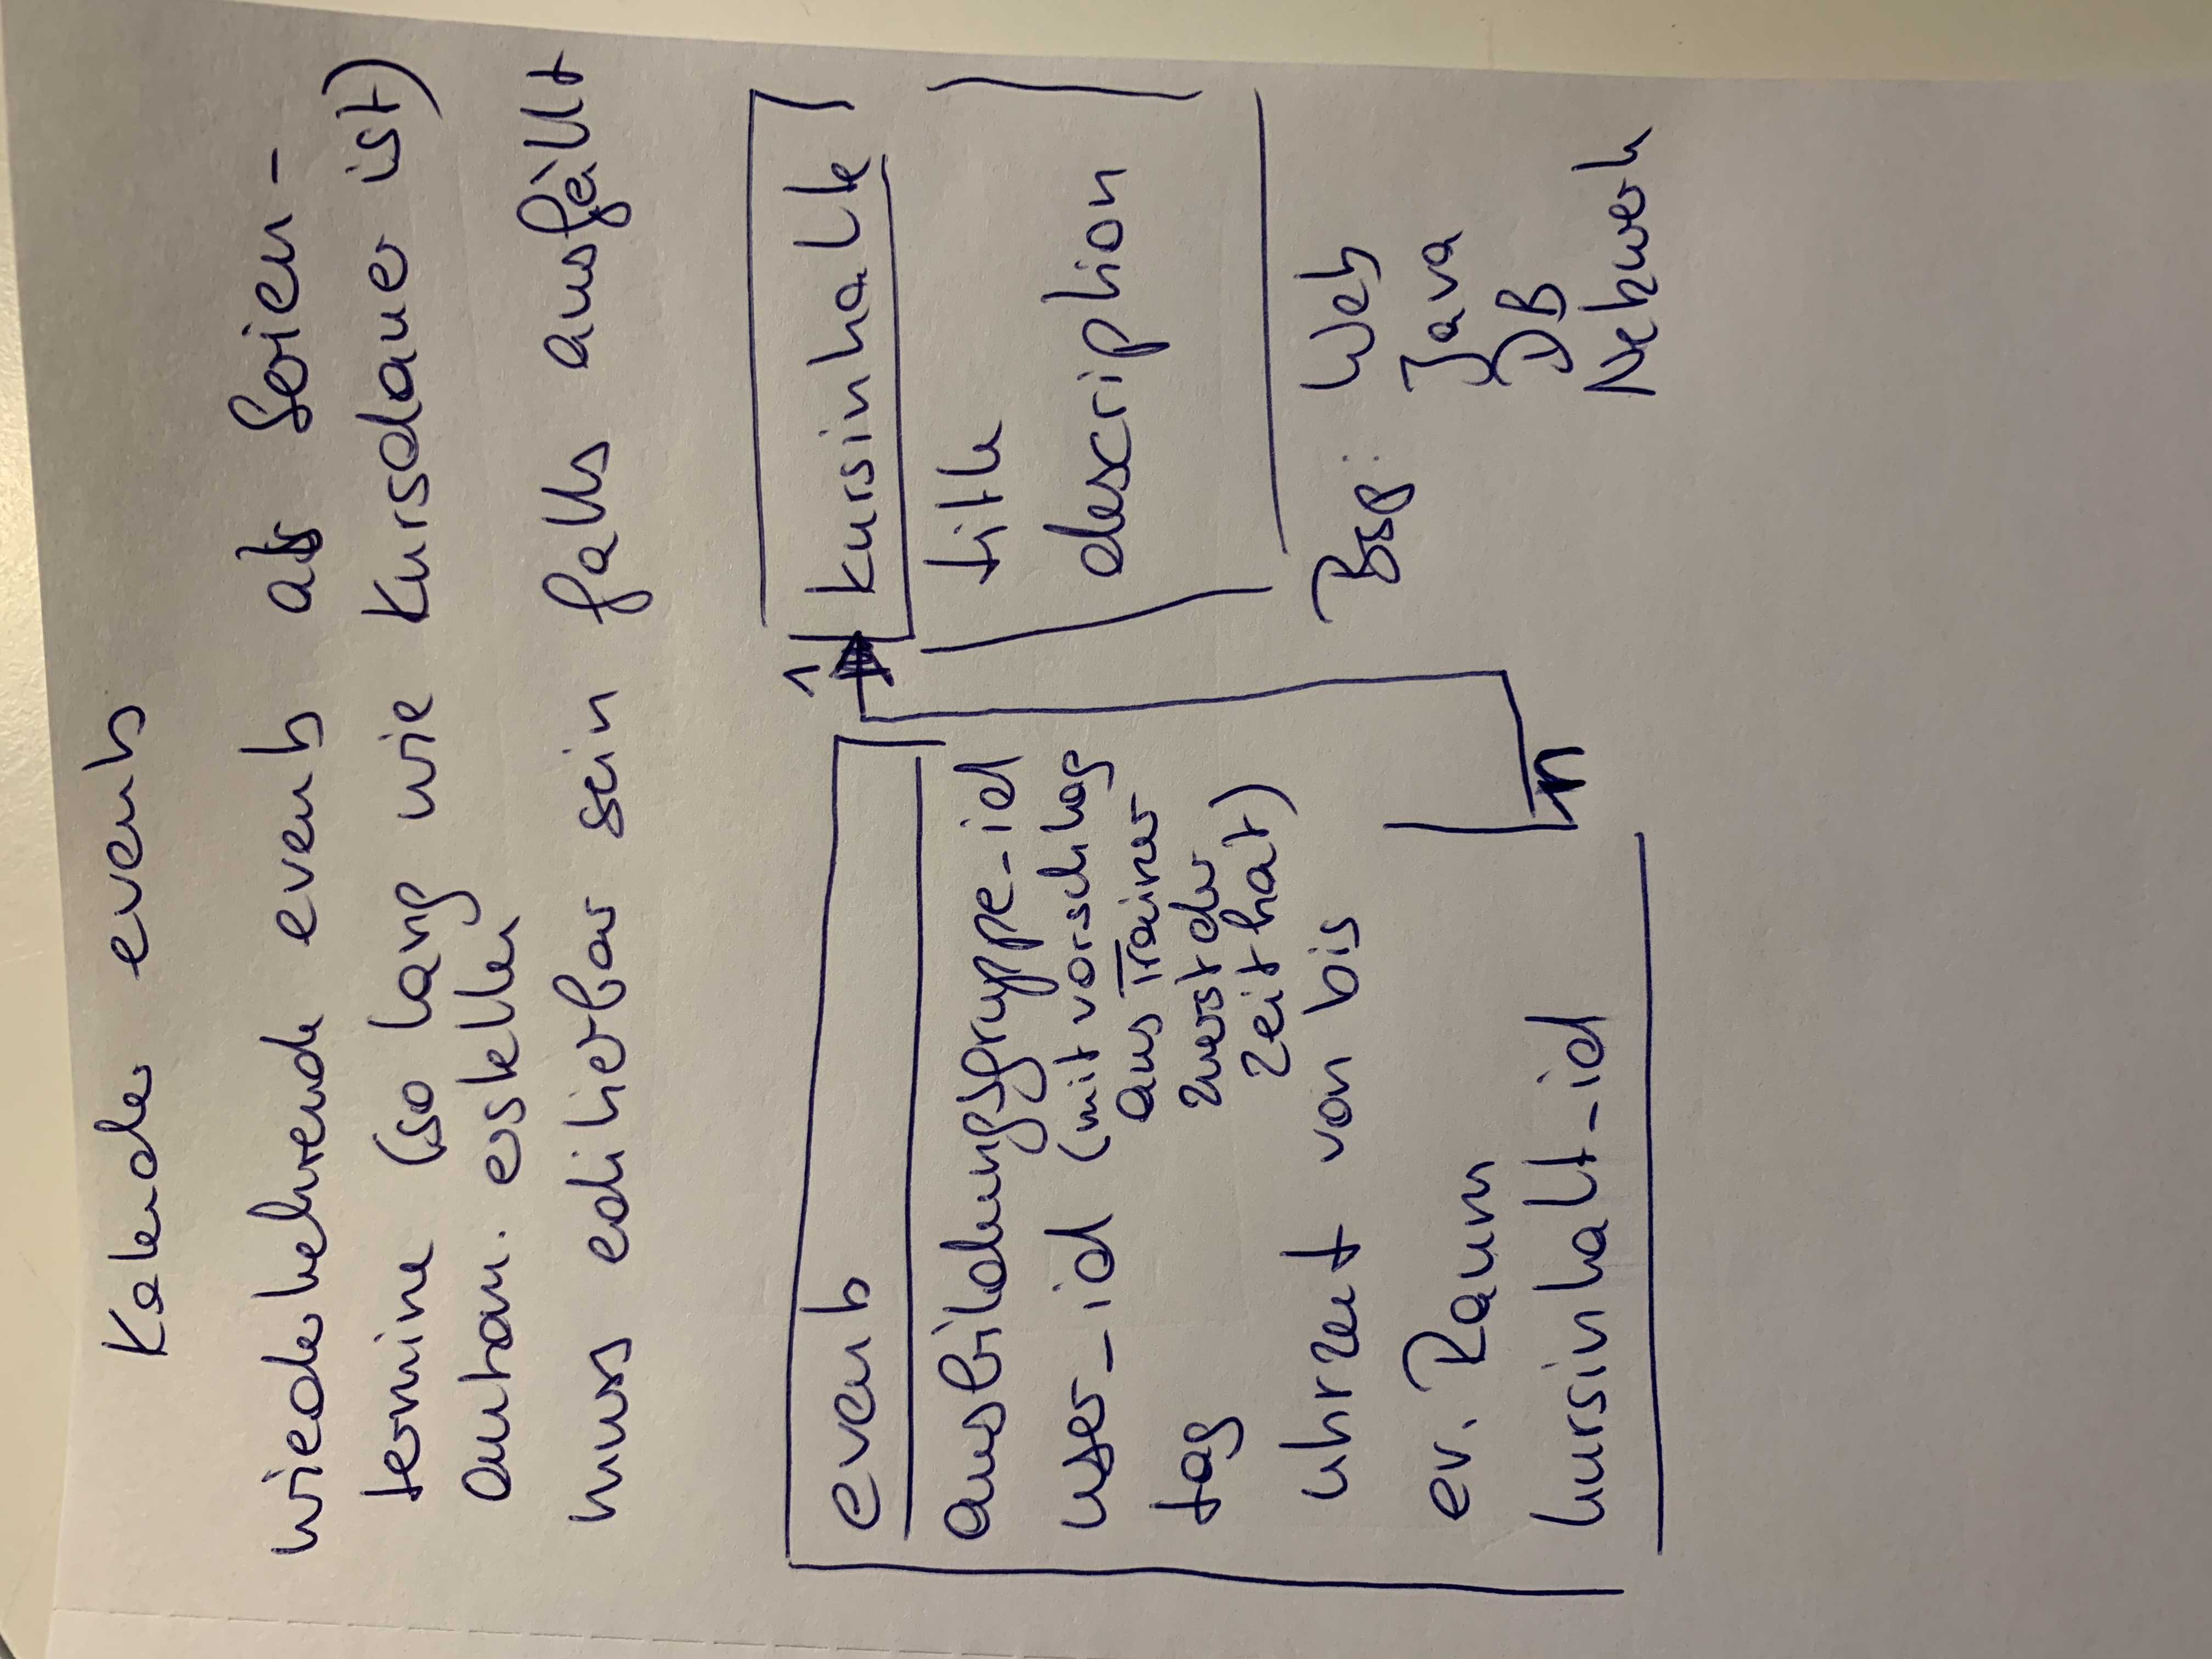 Kalender events
wiederkehrende events als Serien-
termine (so lang wie Kursdauer ist)
autom. erstellen
muss editierbar sein falls ausfällt
events
ausbildungsgruppe_id
user_id (mit vorschlag
aus Trainer
zuerst der
zeit hat)
tag
uhrzeit von bis
ev. Raum
kursinhalt_id
n
1
kursinhalte
title
description
Bsp: Web
Java
DB
Netzwerk